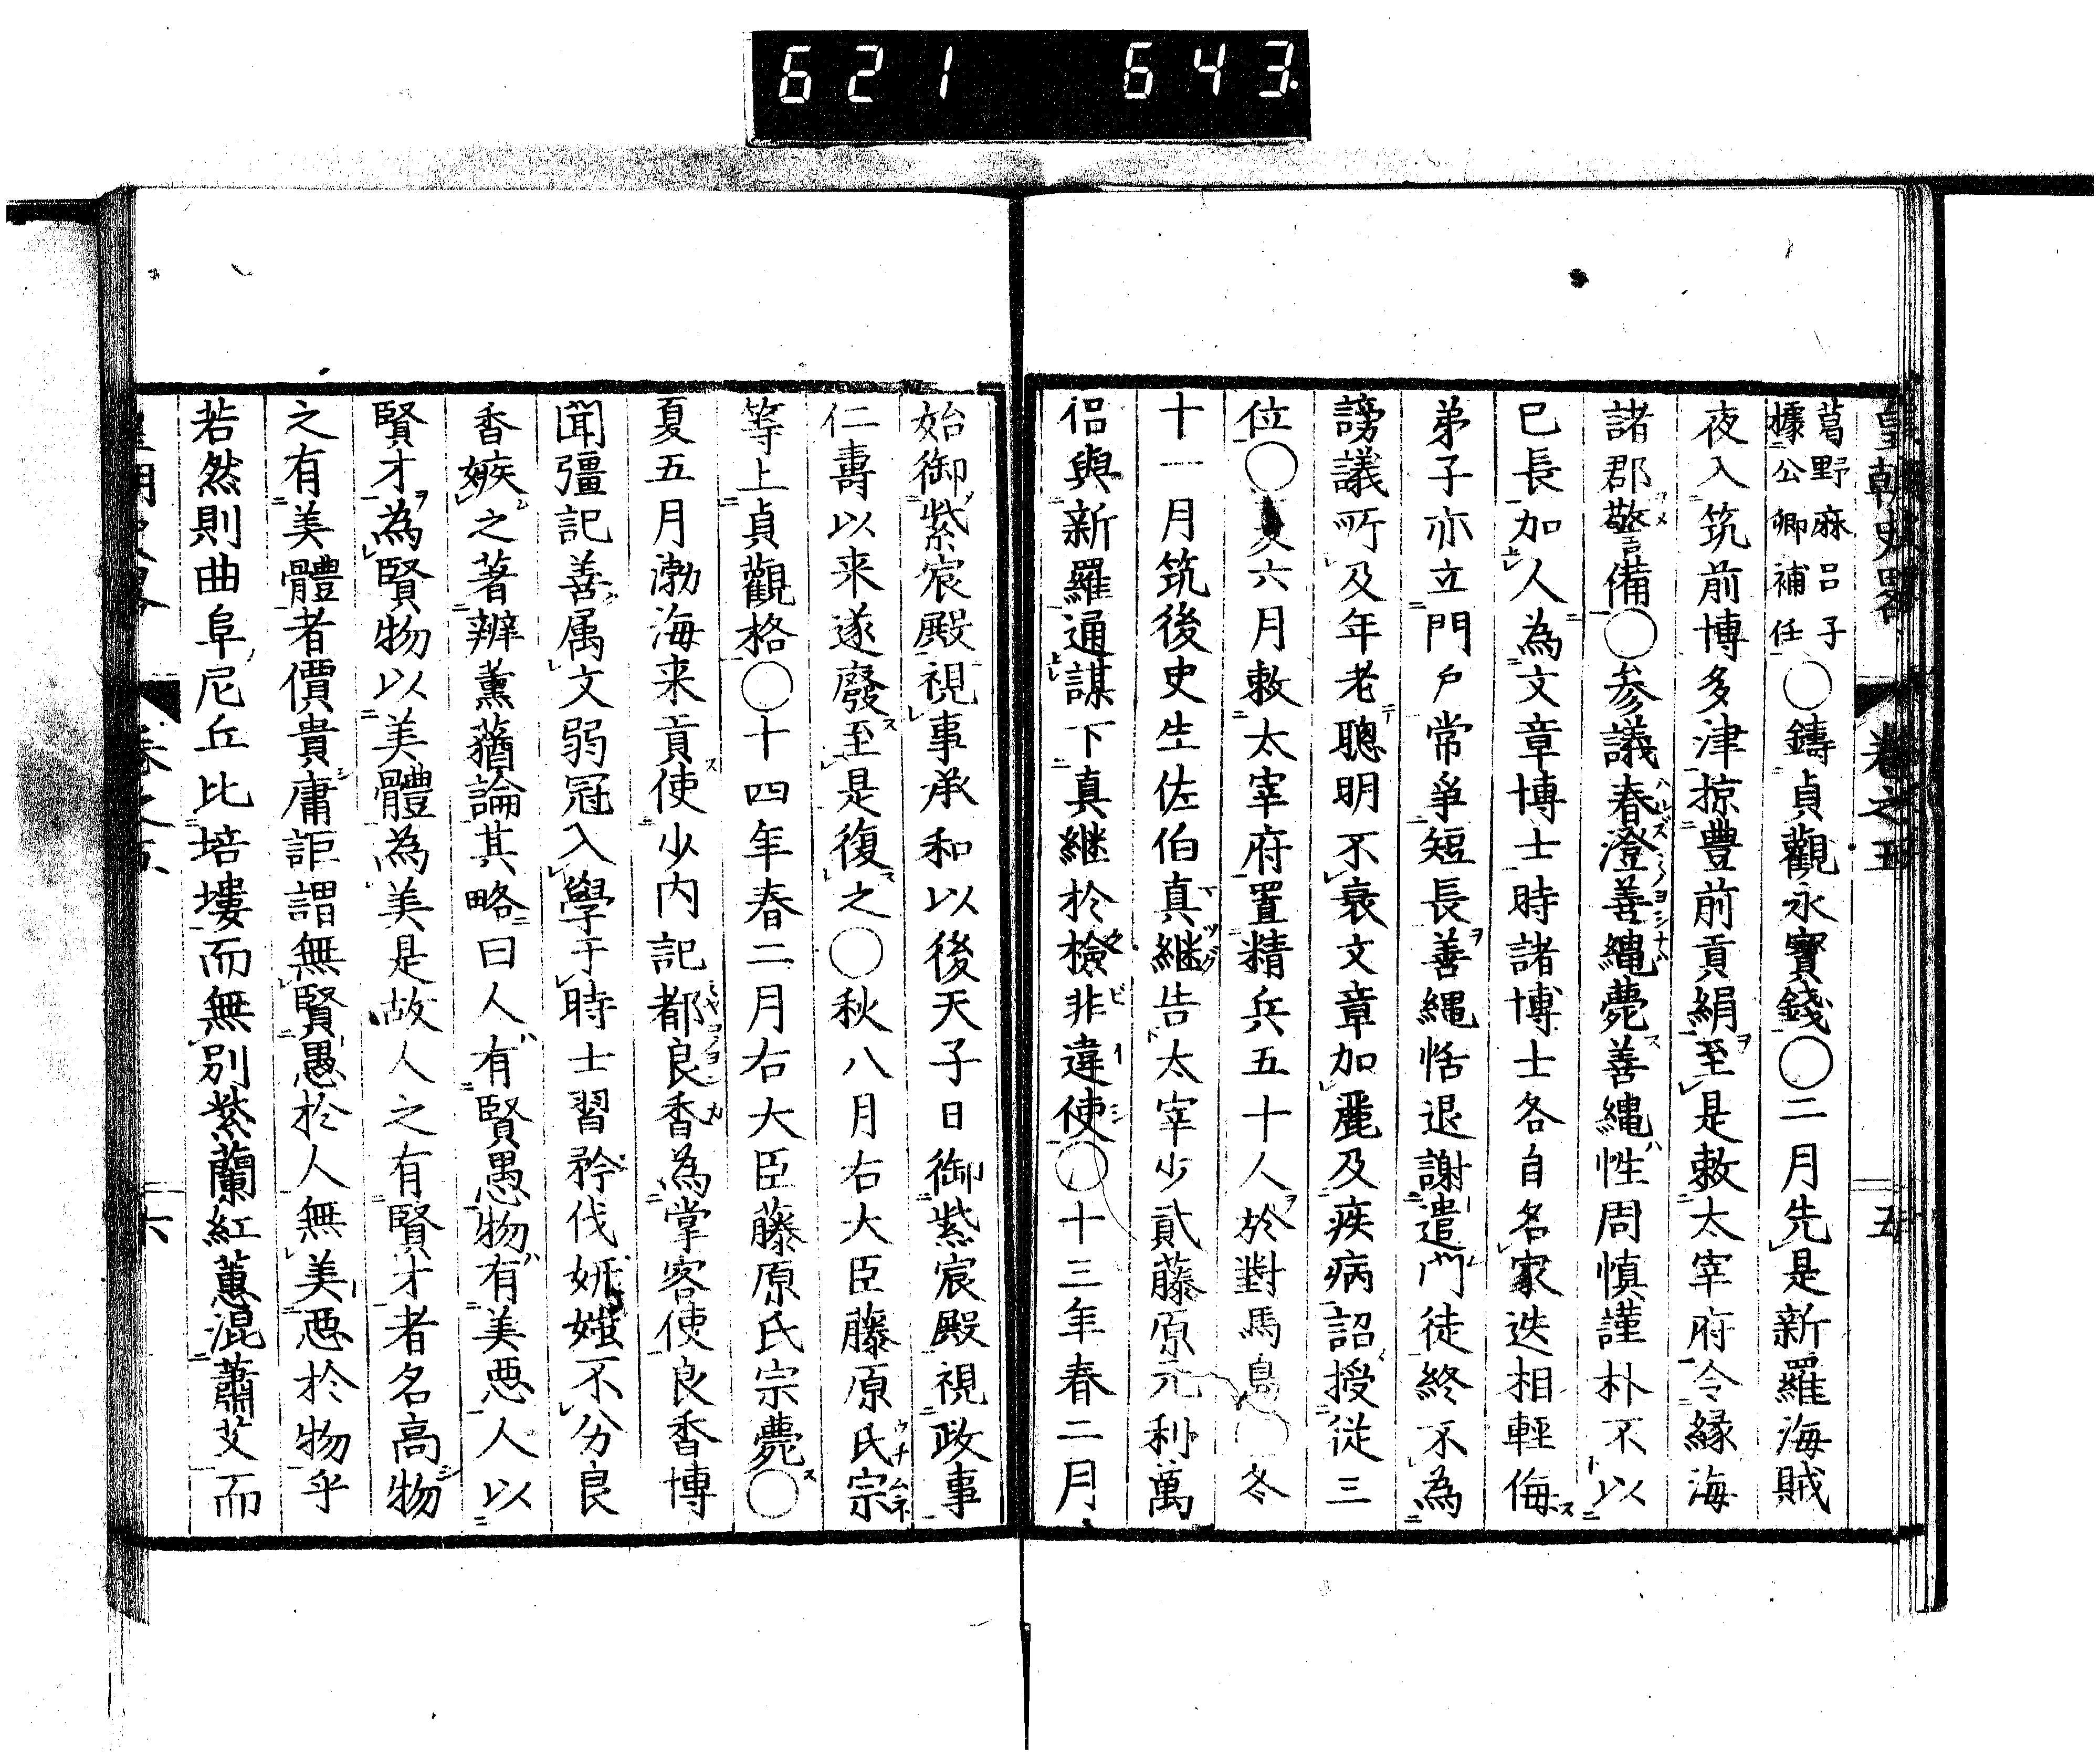 621 643.
皇朝史略 卷之五 五
葛野麻呂子
據公卿補任
○鑄貞觀永寶錢○二月先是新羅海賊
夜入筑前博多津掠豊前貢絹至是敕太宰府令縁海
諸郡警備○参議春澄善縄薨善縄性周慎謹朴不以
已長加人為文章博士時諸博士各自名家迭相軽侮
弟子亦立門戶常爭短長善縄恬退謝遣門徒終不為
謗議所及年老聰明不衰文章加麗及疾病詔授従三
位○六月敕太宰府置精兵五十人於對馬島○冬
十一月筑後史生佐伯真継告太宰少貳藤原元利萬
侶與新羅通謀下真継於檢非違使○十三年春二月
始御紫宸殿視事承和以後天子日御紫宸殿視政事
仁壽以来遂廢至是復之○秋八月右大臣藤原氏宗
等上貞觀格○十四年春二月右大臣藤原氏宗薨○
夏五月渤海来貢使少内記都良香為掌客使良香博
聞彊記善属文弱冠入學于時士習矜伐妍媸不分良
香嫉之著辨薫蕕論其略曰人有賢愚物有美惡人以
賢才為賢物以美體為美是故人之有賢才者名高物
之有美體者價貴庸詎謂無賢愚於人無美惡於物乎
若然則曲阜尼丘比培塿而無別紫蘭紅蕙混蕭艾而
六